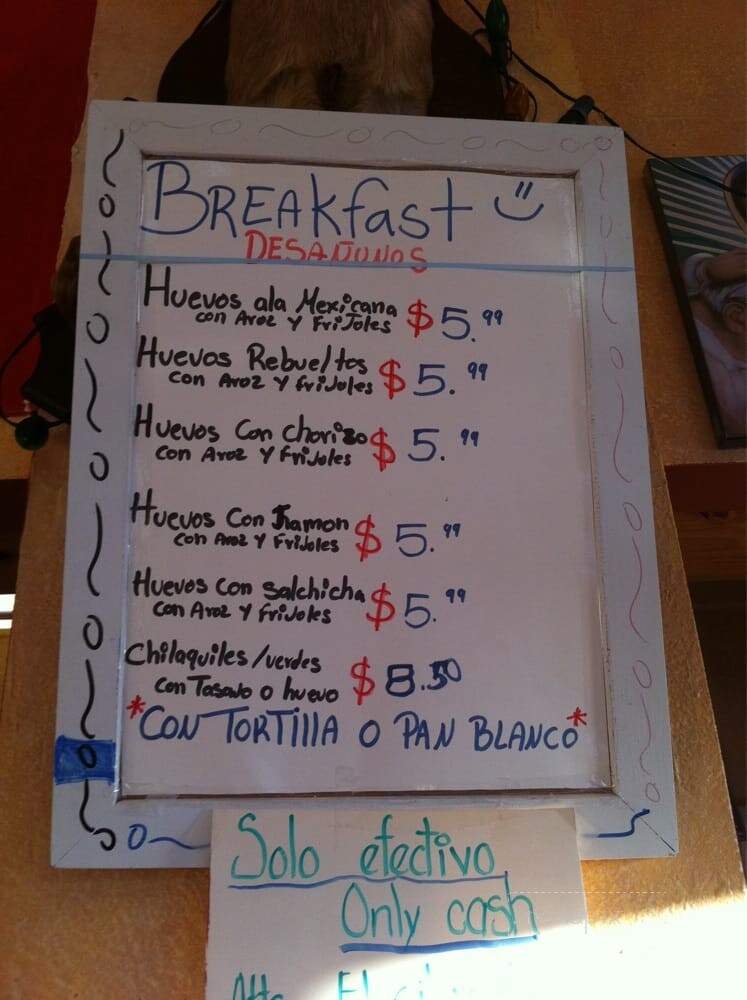 BREAKfast
DESAJUNOS
Huevos ala Mexicana $5.99
con Aroz Y FriJoles
Huevos Rebueltos $5.99
con Aroz Y friJoles
Huevos Con chorizo $5.99
con Aroz Y FriJoles
Huevos Con Jamon $5.99
con Aroz Y FriJoles
Huevos Con salchicha $5.99
con Aroz Y friJoles
Chilaquiles/verdes $8.50
con Tasajo o huevo
*CON TORTIllA O PAN BLANCO*
Solo efectivo
Only cash